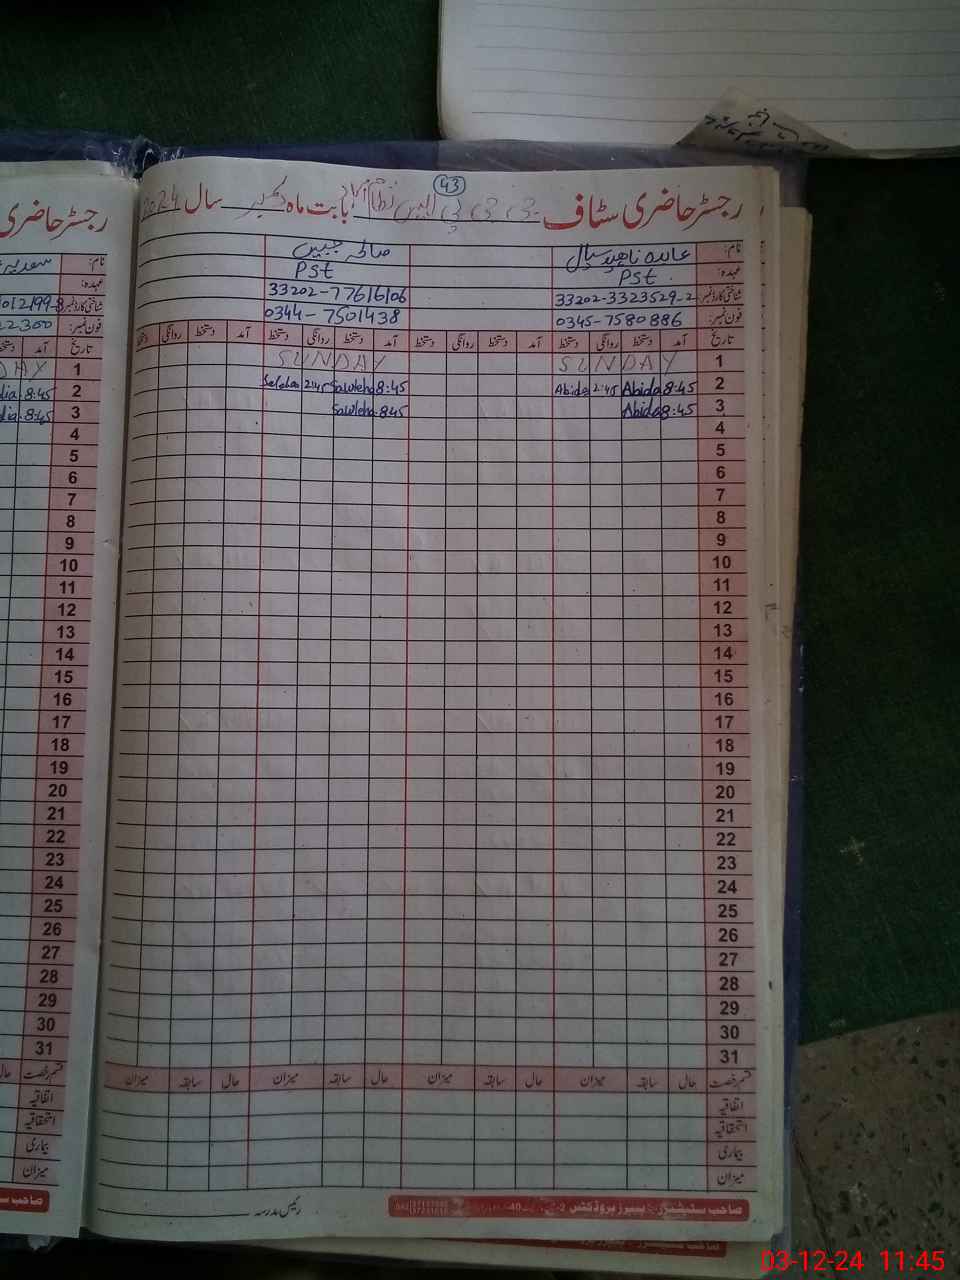 43
رجسٹر حاضری سٹاف بابت ماہ دسمبر سال 2024
نام: عابدہ ناہید سیال صالحہ جبیں
عہدہ: Pst Pst
شناختی کارڈ نمبر: 33202-3323529-2 33202-77616106
فون نمبر: 0345-7580886 0344-7501438
تاریخ آمد دستخط روانگی دستخط آمد دستخط روانگی دستخط آمد دستخط روانگی دستخط آمد دستخط روانگی دستخط
1 SUNDAY SUNDAY
2 8:45 Abida 2:45 Abida 8:45 Sawleha 2:45
3 8:45 Abida 845 Sawleha
4
5
6
7
8
9
10
11
12
13
14
15
16
17
18
19
20
21
22
23
24
25
26
27
28
29
30
31
قسم رخصت حال سابقہ میزان حال سابقہ میزان حال سابقہ میزان حال سابقہ میزان
اتفاقیہ
استحقاقیہ
بیماری
میزان
رئیس مدرسہ
صاحب سٹیشنرز پیپرز پروڈکٹس
رجسٹر حاضری
نام: سعدیہ
عہدہ:
شناختی کارڈ نمبر:
فون نمبر: 22300
تاریخ آمد
1
2 8:45
3 8:45
4
5
6
7
8
9
10
11
12
13
14
15
16
17
18
19
20
21
22
23
24
25
26
27
28
29
30
31
قسم رخصت حال
اتفاقیہ
استحقاقیہ
بیماری
میزان
03-12-24 11:45